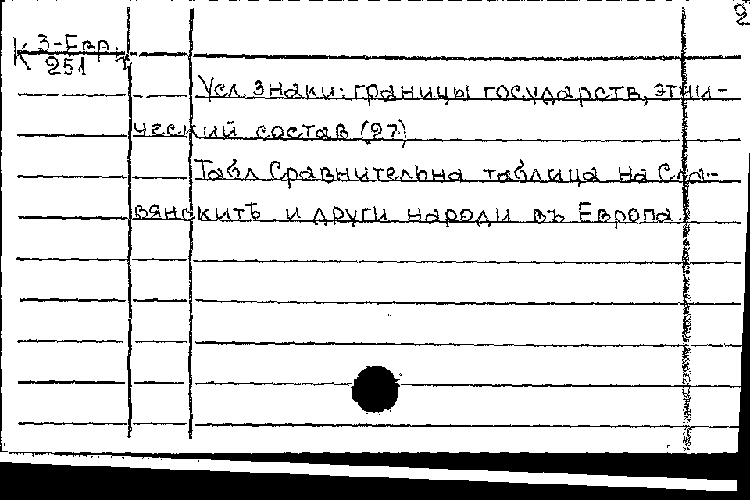 2
К 3-Евр.
251
Усл. знаки: границы государств, этни-
ческий состав (27)
Табл. Сравнительна таблица на Сла-
вянскитѣ и други народи въ Европа.